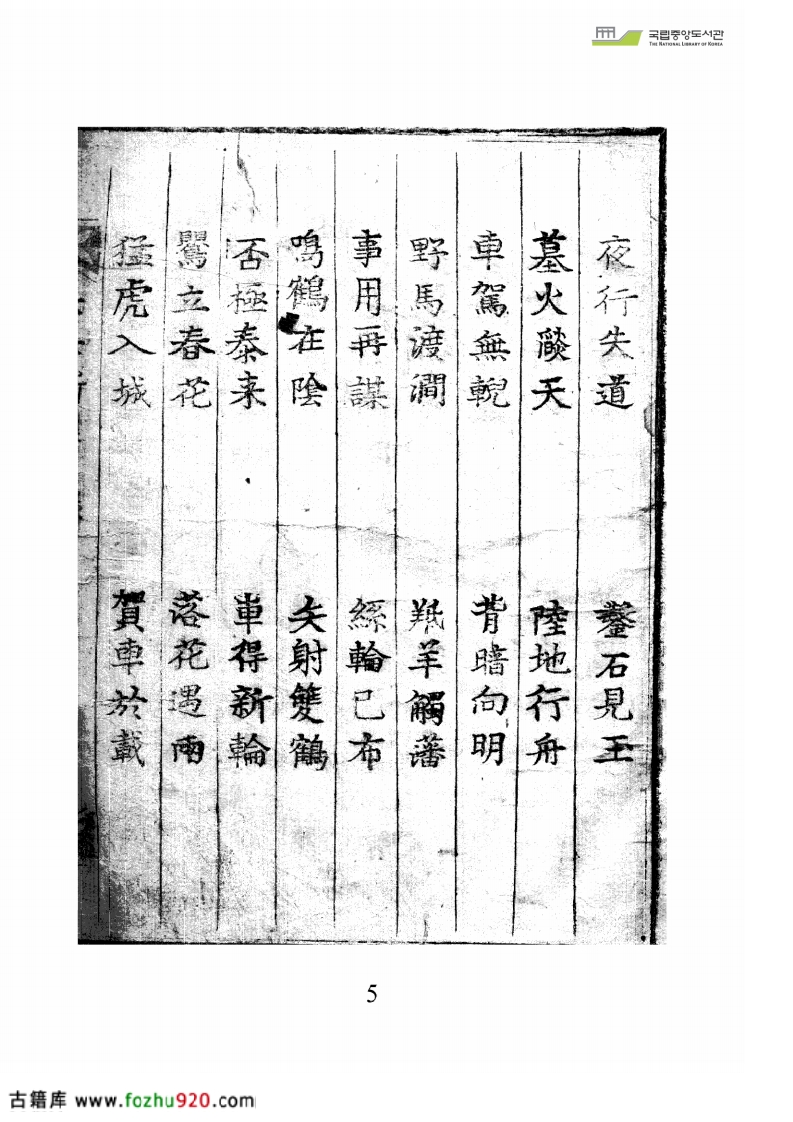 국립중앙도서관
THE NATIONAL LIBRARY OF KOREA
夜行失道 鑿石見玉
墓火燄天 陸地行舟
車駕無輗 背暗向明
野馬渡澗 羝羊觸藩
事用再謀 絲輪已布
鳴鶴在陰 矢射雙鶴
否極泰来 車得新輪
鸎立春花 落花遇雨
猛虎入城 賀車於載
5
古籍库 www.fozhu920.com